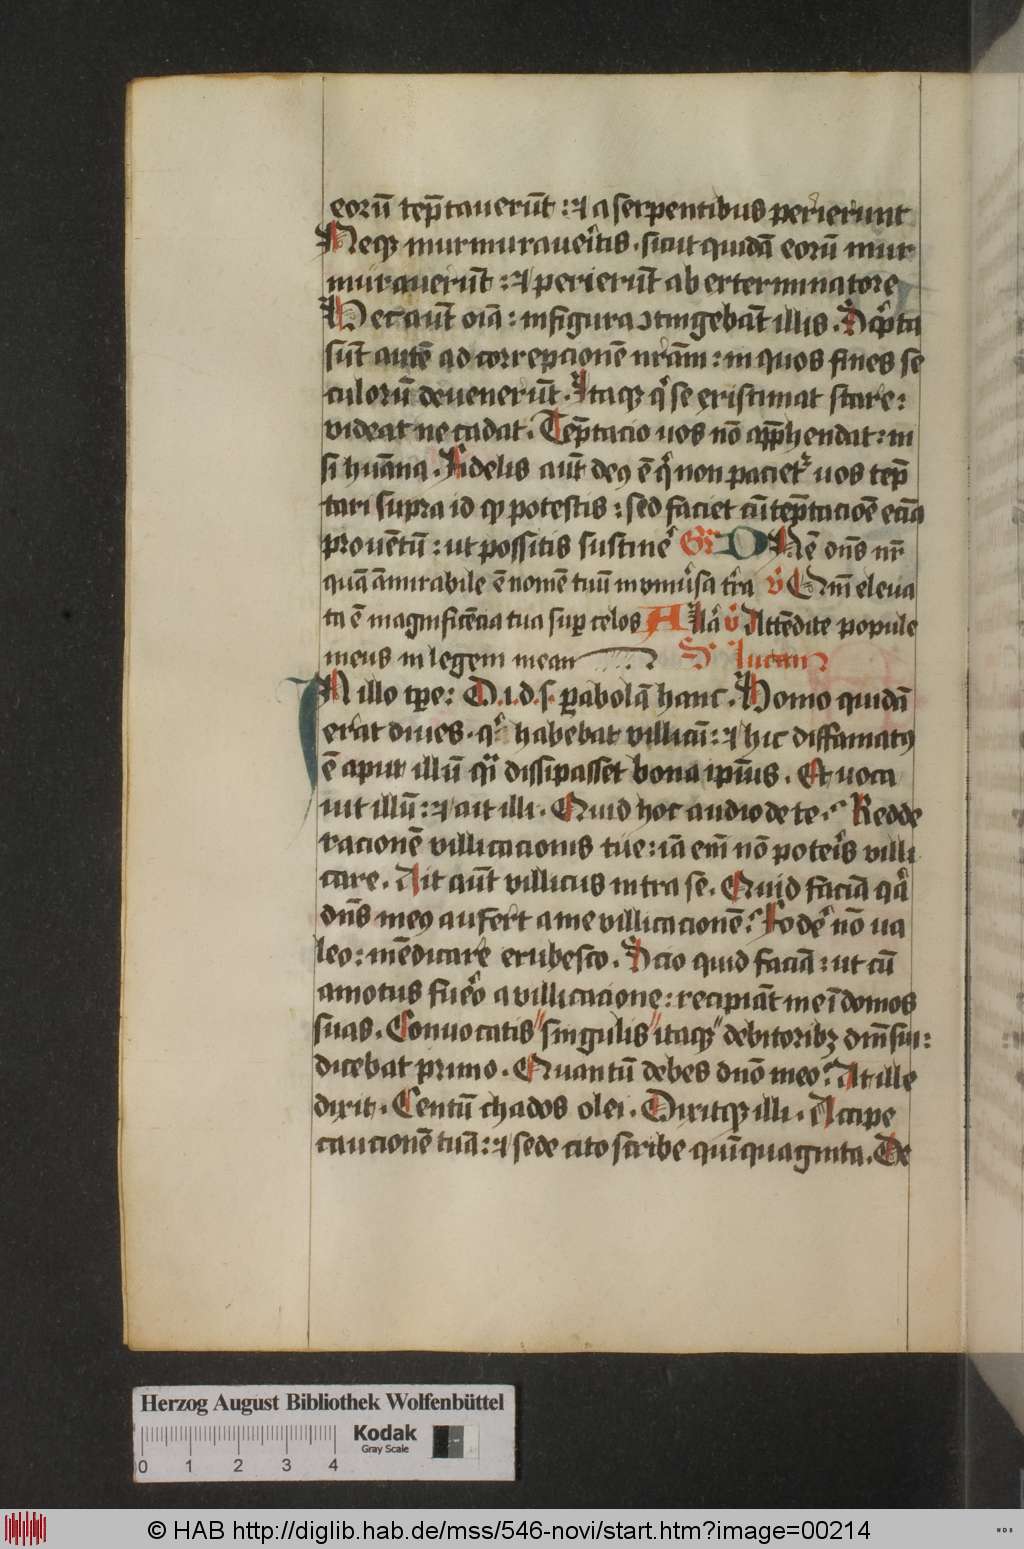 eorū tēptauerūt : ⁊ a serpentibus perierunt
Neqꝫ murmuraueritis · sicut quidā eorū mur
murauerūt : ⁊ perierūt ab exterminatore
Hec aūt oīa : in figura ↄtingebāt illis . Scͥpta
sūt autē ad correpcionē nr̄am : in quos fines se
culorū deuenerūt . Itaqꝫ qͥ se existimat stare :
videat ne cadat . Tēptacio uos nō app̄hendat : ni
si hūana . Fidelis aūt deꝰ ē qͥ non pacietᷣ uos tēp
tari supra id qꝫ potestis : sed faciet cū tēptacioē eciā
prouētū : ut possitis sustineͬ Gͬ DNē dn̄s nr̄
quā āmirabile ē nomē tuū in vniuͥsa tͬra v̄ Qm̄ eleua
ta ē magnificēcia tua suꝑ celos Allā v̄ Attēdite popule
meus in legem meam S Lucam
IN illo tꝑe : D . i . d . s . ꝑabolā hanc . Homo quidā
erat diues . qͥ habebat villicū : ⁊ hic diffamatꝰ
ē aput illū qͣi dissipasset bona ipīus . Et uoca
uit illū : ⁊ ait illi . Quid hoc audio de te . Redde
racionē villicacionis tue : iā em̄ nō poteris villi
care . Ait aūt villicus intra se . Quid faciā qͣ
dn̄s meꝰ aufert a me villicacionē . Fodeͬ nō ua
leo : mēdicare erubesco . Scio quid faciā : ut cū
amotus fueͬo a villicacione : recipiāt me ī domos
suas . Conuocatis singulis itaqꝫ debitoribꝫ dn̄i sui :
dicebat primo . Quantū debes dn̄o meo . At ille
dixit . Centū chados olei . Dixitqꝫ illi . Accipe
caucionē tuā : ⁊ sede cito scribe quīquaginta . De
Herzog August Bibliothek Wolfenbüttel
Kodak
Gray Scale
0 1 2 3 4
© HAB http://diglib.hab.de/mss/546-novi/start.htm?image=00214